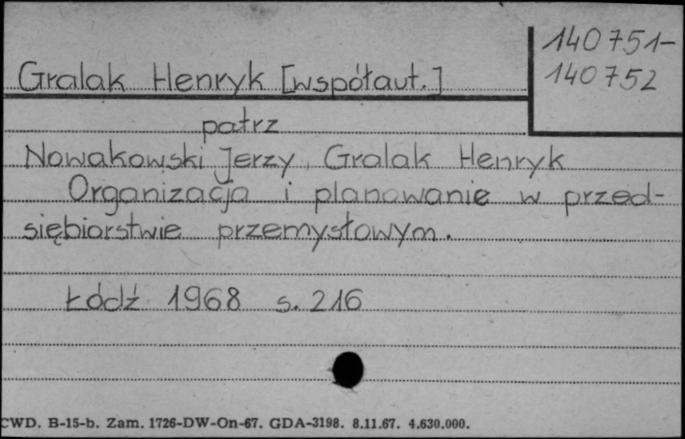 140751-
140752
Gralak Henryk [współaut.]
patrz
Nowakowski Jerzy, Gralak Henryk
Organizacja i planowanie w przed-
siębiorstwie przemysłowym.
Łódź 1968 s. 216
CWD. B-15-b. Zam. 1726-DW-On-67. GDA-3198. 8.11.67. 4.630.000.